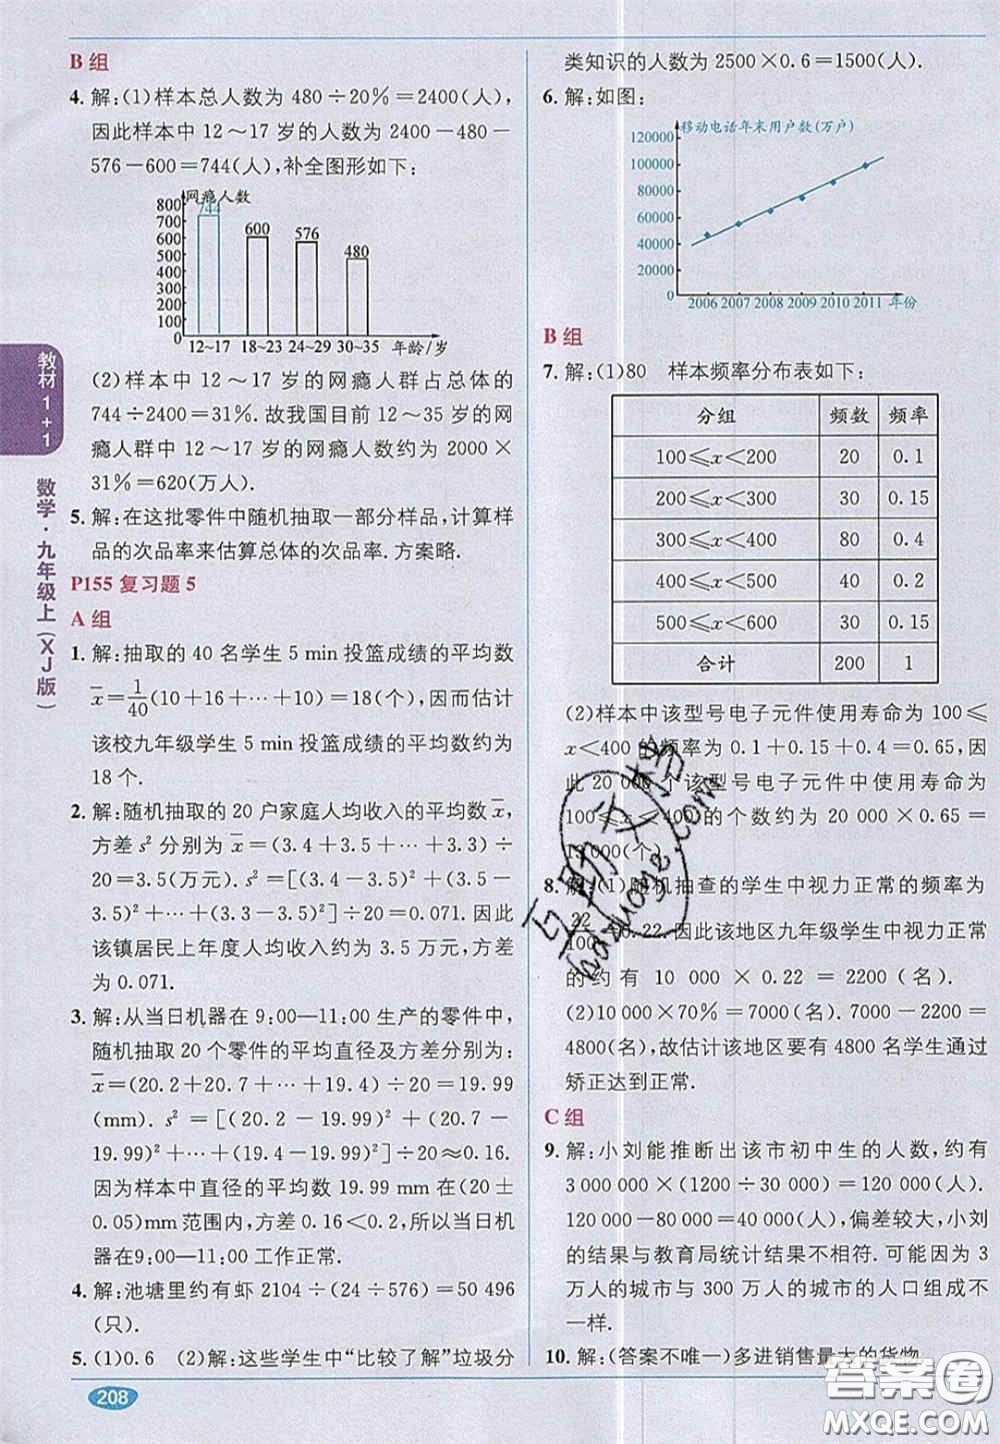 B 组
4. 解:(1)样本总人数为 480÷20%=2400(人),
因此样本中 12～17 岁的人数为 2400－480－
576－600=744(人),补全图形如下:
网瘾人数
800
700
600
500
400
300
200
100
0
744
600
576
480
12~17 18~23 24~29 30~35 年龄/岁
(2)样本中 12～17 岁的网瘾人群占总体的
744÷2400=31%. 故我国目前 12～35 岁的网
瘾人群中 12～17 岁的网瘾人数约为 2000×
31%=620(万人).
5. 解:在这批零件中随机抽取一部分样品,计算样
品的次品率来估算总体的次品率. 方案略.
P155 复习题 5
A 组
1. 解:抽取的 40 名学生 5 min 投篮成绩的平均数
x̄=1/40(10+16+…+10)=18(个),因而估计
该校九年级学生 5 min 投篮成绩的平均数约为
18 个.
2. 解:随机抽取的 20 户家庭人均收入的平均数 x̄,
方差 s² 分别为 x̄=(3.4+3.5+…+3.3)÷
20=3.5(万元). s²=[(3.4－3.5)²+(3.5－
3.5)²+…+(3.3－3.5)²]÷20=0.071. 因此
该镇居民上年度人均收入约为 3.5 万元,方差
为 0.071.
3. 解:从当日机器在 9:00—11:00 生产的零件中,
随机抽取 20 个零件的平均直径及方差分别为:
x̄=(20.2+20.7+…+19.4)÷20=19.99
(mm). s²=[(20.2－19.99)²+(20.7－
19.99)²+…+(19.4－19.99)²]÷20≈0.16.
因为样本中直径的平均数 19.99 mm 在(20±
0.05)mm 范围内,方差 0.16<0.2,所以当日机
器在9:00—11:00 工作正常.
4. 解:池塘里约有虾 2104÷(24÷576)=50 496
(只).
5. (1)0.6 (2)解:这些学生中“比较了解”垃圾分
类知识的人数为 2500×0.6=1500(人).
6. 解:如图:
移动电话年末用户数(万户)
120000
100000
80000
60000
40000
20000
0
2006 2007 2008 2009 2010 2011 年份
B 组
7. 解:(1)80 样本频率分布表如下:
分组 频数 频率
100≤x<200 20 0.1
200≤x<300 30 0.15
300≤x<400 80 0.4
400≤x<500 40 0.2
500≤x<600 30 0.15
合计 200 1
(2)样本中该型号电子元件使用寿命为 100≤
x<400 的频率为 0.1+0.15+0.4=0.65,因
此 20 000 个该型号电子元件中使用寿命为
100≤x<400 的个数约为 20 000×0.65=
13 000(个).
8. 解:(1)随机抽查的学生中视力正常的频率为
22/100=0.22. 因此该地区九年级学生中视力正常
的约有 10 000×0.22=2200(名).
(2)10 000×70%=7000(名),7000－2200=
4800(名),故估计该地区要有 4800 名学生通过
矫正达到正常.
C 组
9. 解:小刘能推断出该市初中生的人数,约有
3 000 000×(1200÷30 000)=120 000(人).
120 000－80 000=40 000(人),偏差较大,小刘
的结果与教育局统计结果不相符. 可能因为 3
万人的城市与 300 万人的城市的人口组成不
一样.
10. 解:(答案不唯一)多进销售量大的货物.
教材1+1
数学·九年级上(XJ版)
208
互助文档
hazuoye.com
答案圈
MXQE.COM